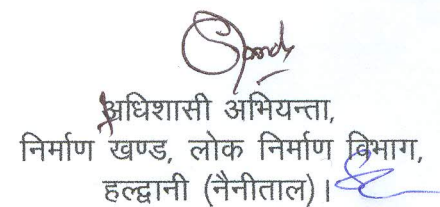 अधिशासी अभियन्ता,
निर्माण खण्ड, लोक निर्माण विभाग,
हल्द्वानी (नैनीताल)।